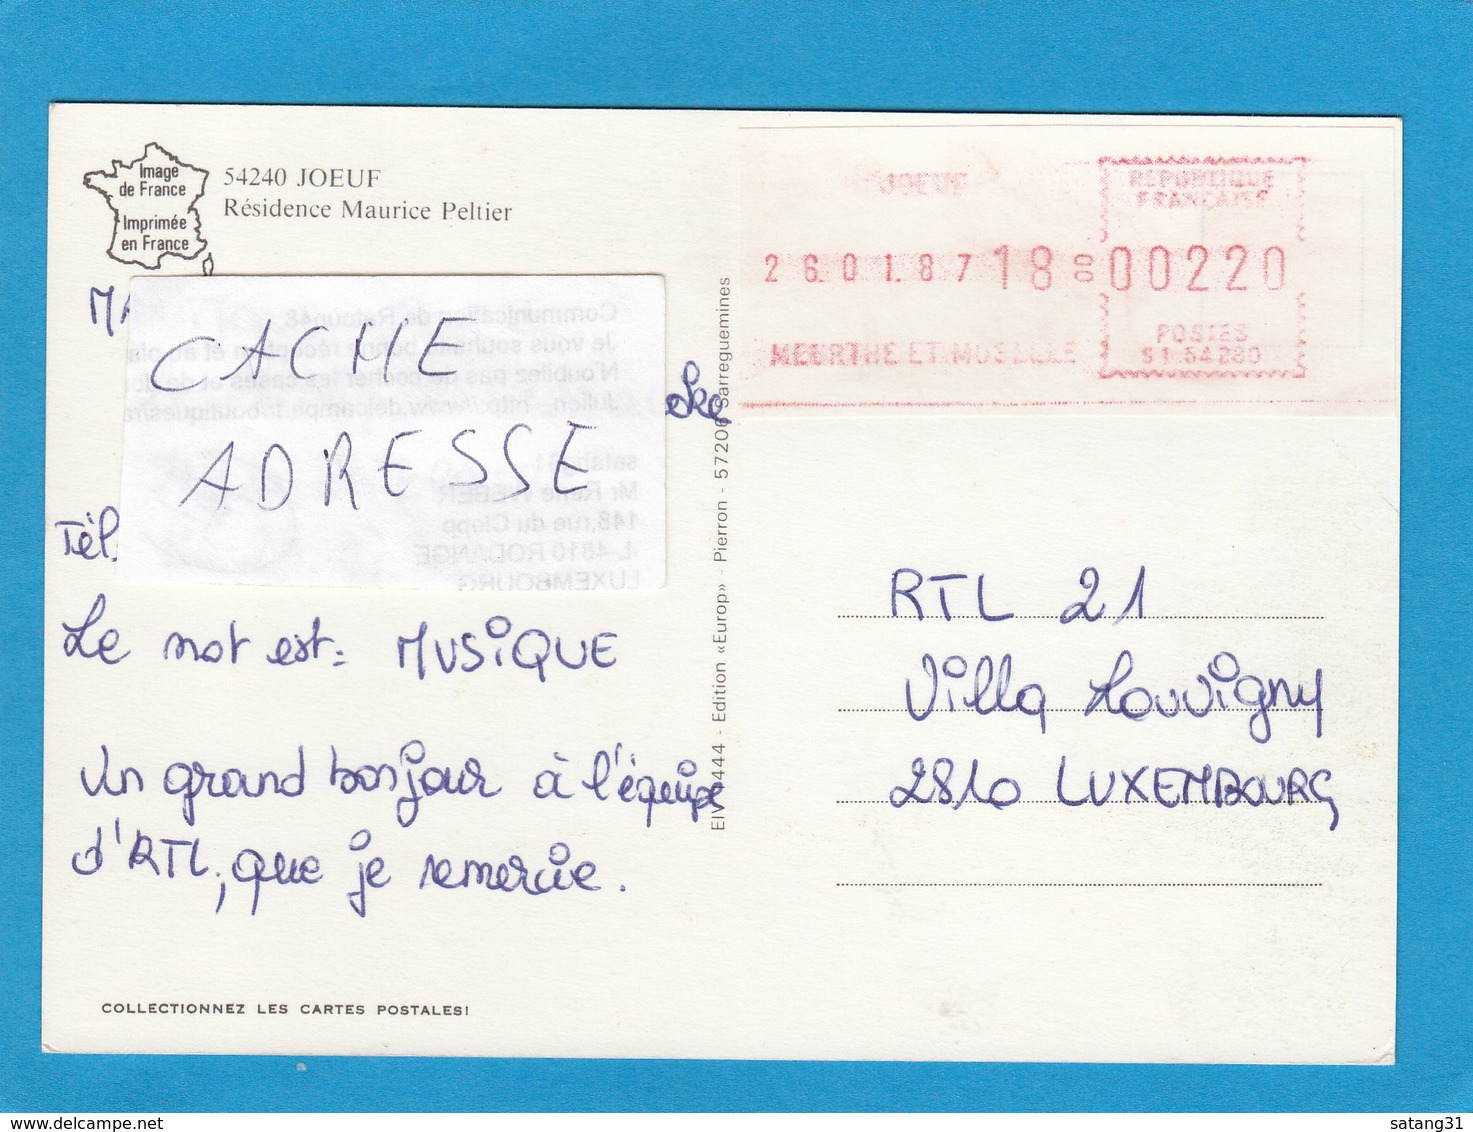 Image
de France
Imprimée
en France
54240 JOEUF
Résidence Maurice Peltier
CACHE
ADRESSE
Tél.
Le mot est: MUSiQUE
Un grand bonjour à l'équipe
d'RTL, que je remercie.
COLLECTIONNEZ LES CARTES POSTALES!
Edition «Europ» - Pierron - 57206 Sarreguemines
JOEUF
REPUBLIQUE
FRANCAISE
26.01.87 18 00 00220
POSTES
MEURTHE ET MOSELLE
RTL 21
Villa Louvigny
2810 LUXEMBOURG
satang31